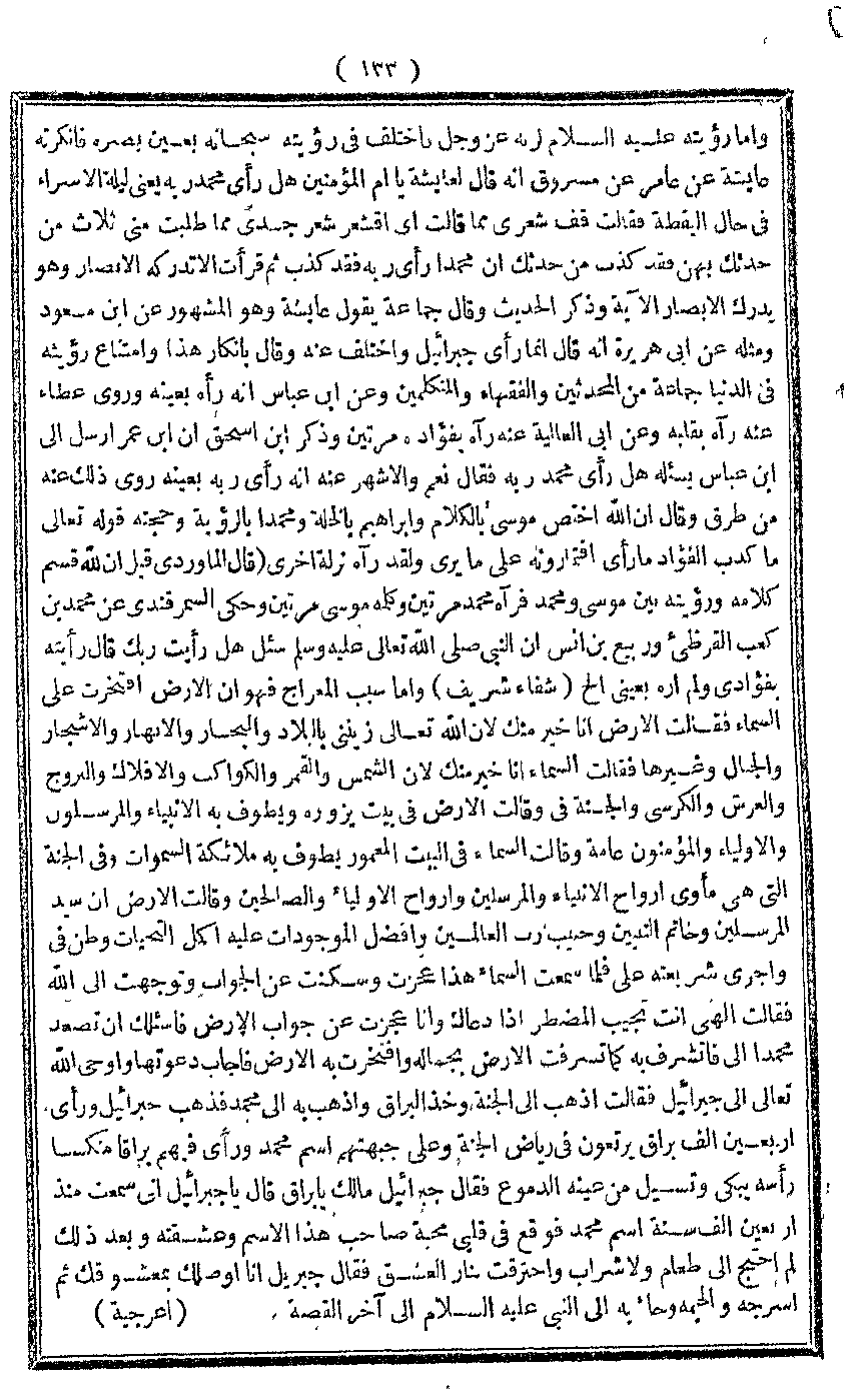 ( ١٣٣ )
واما رؤيته عليه السلام لربه عز وجل فاختلف فى رؤيته سبحانه بعين بصره فانكرته
عايشة عن عامر عن مسروق انه قال لعايشة يا ام المؤمنين هل رأى محمد ربه يعنى ليلة الاسراء
فى حال اليقظة فقالت قف شعرى مما قالت اى اقشعر شعر جسدى مما طلبت منى ثلاث من
حدثك بهن فقد كذب من حدثك ان محمدا رأى ربه فقد كذب ثم قرأت لاتدركه الابصار وهو
يدرك الابصار الآية وذكر الحديث وقال جماعة يقول عايشة وهو المشهور عن ابن مسعود
ومثله عن ابى هريرة انه قال انما رأى جبرائيل واختلف عنه وقال بانكار هذا وامتناع رؤيته
فى الدنيا جماعة من المحدثين والفقهاء والمتكلمين وعن ابن عباس انه رأه بعينه وروى عطاء
عنه رآه بقلبه وعن ابى العالية عنه رآه بفؤاده مرتين وذكر ابن اسحق ان ابن عمر ارسل الى
ابن عباس يسأله هل رأى محمد ربه فقال نعم والاشهر عنه انه رأى ربه بعينه روى ذلك عنه
من طرق وقال ان الله اختص موسى بالكلام وابراهيم بالخلة ومحمدا بالرؤية وحجته قوله تعالى
ما كذب الفؤاد مارأى افتمارونه على ما يرى ولقد رآه نزلة اخرى (قال الماوردى قيل ان الله قسم
كلامه ورؤيته بين موسى ومحمد فرآه محمد مرتين وكلمه موسى مرتين وحكى السمرقندى عن محمد بن
كعب القرظى وربيع بن انس ان النبى صلى الله تعالى عليه وسلم سئل هل رأيت ربك قال رأيته
بفؤادى ولم اره بعينى الخ (شفاء شريف) واما سبب المعراج فهو ان الارض افتخرت على
السماء فقالت الارض انا خير منك لان الله تعالى زيننى بالبلاد والبحار والانهار والاشجار
والجبال وغيرها فقالت السماء انا خير منك لان الشمس والقمر والكواكب والافلاك والبروج
والعرش والكرسى والجنة فى وقالت الارض فى بيت يزوره ويطوف به الانبياء والمرسلون
والاولياء والمؤمنون عامة وقالت السماء فى البيت المعمور يطوف به ملائكة السموات وفى الجنة
التى هى مأوى ارواح الانبياء والمرسلين وارواح الاولياء والصالحين وقالت الارض ان سيد
المرسلين وخاتم النبيين وحبيب رب العالمين وافضل الموجودات عليه اكمل التحيات وطن فى
واجرى شريعته على فلما سمعت السماء هذا عجزت وسكنت عن الجواب وتوجهت الى الله
فقالت الهى انت تجيب المضطر اذا دعاك وانا عجزت عن جواب الارض فاسئلك ان تصعد
محمدا الى فاتشرف به كما تسرفت الارض بجماله وافتخرت به الارض فاجاب دعوتها واوحى الله
تعالى الى جبرائيل فقالت اذهب الى الجنة وخذ البراق واذهب به الى محمد فذهب جبرائيل ورأى
اربعين الف براق يرتعون فى رياض الجنة وعلى جبهتهم اسم محمد ورأى فيهم براقا منكسا
رأسه يبكى وتسيل من عينه الدموع فقال جبرائيل مالك يابراق قال ياجبرائيل انى سمعت منذ
اربعين الف سنة اسم محمد فوقع فى قلبى محبة صاحب هذا الاسم وعشقته وبعد ذلك
لم احتج الى طعام ولا شراب واحترقت بنار العشق فقال جبريل انا اوصلك بمعشوقك ثم
اسرجه والجمه وجاء به الى النبى عليه السلام الى آخر القصة (اعرجية)